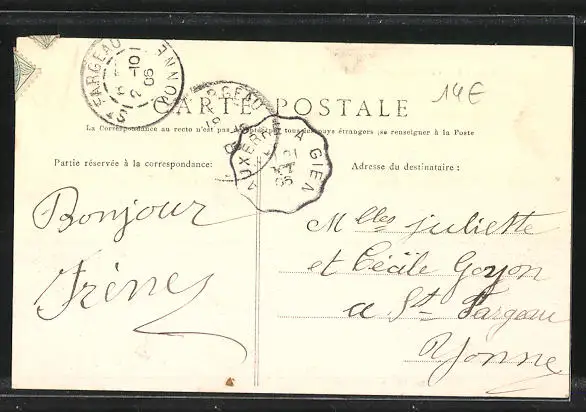 ST FARGEAU YONNE
2 -10
06
14E
CARTE POSTALE
La Correspondance au recto n'est pas tous pays étrangers (se renseigner à la Poste
AUXERRE A GIEN
21
Partie réservée à la correspondance:
Adresse du destinataire:
Bonjour
Irène
Mlles Juliette
et Cécile Goyon
a St Fargeau
Yonne